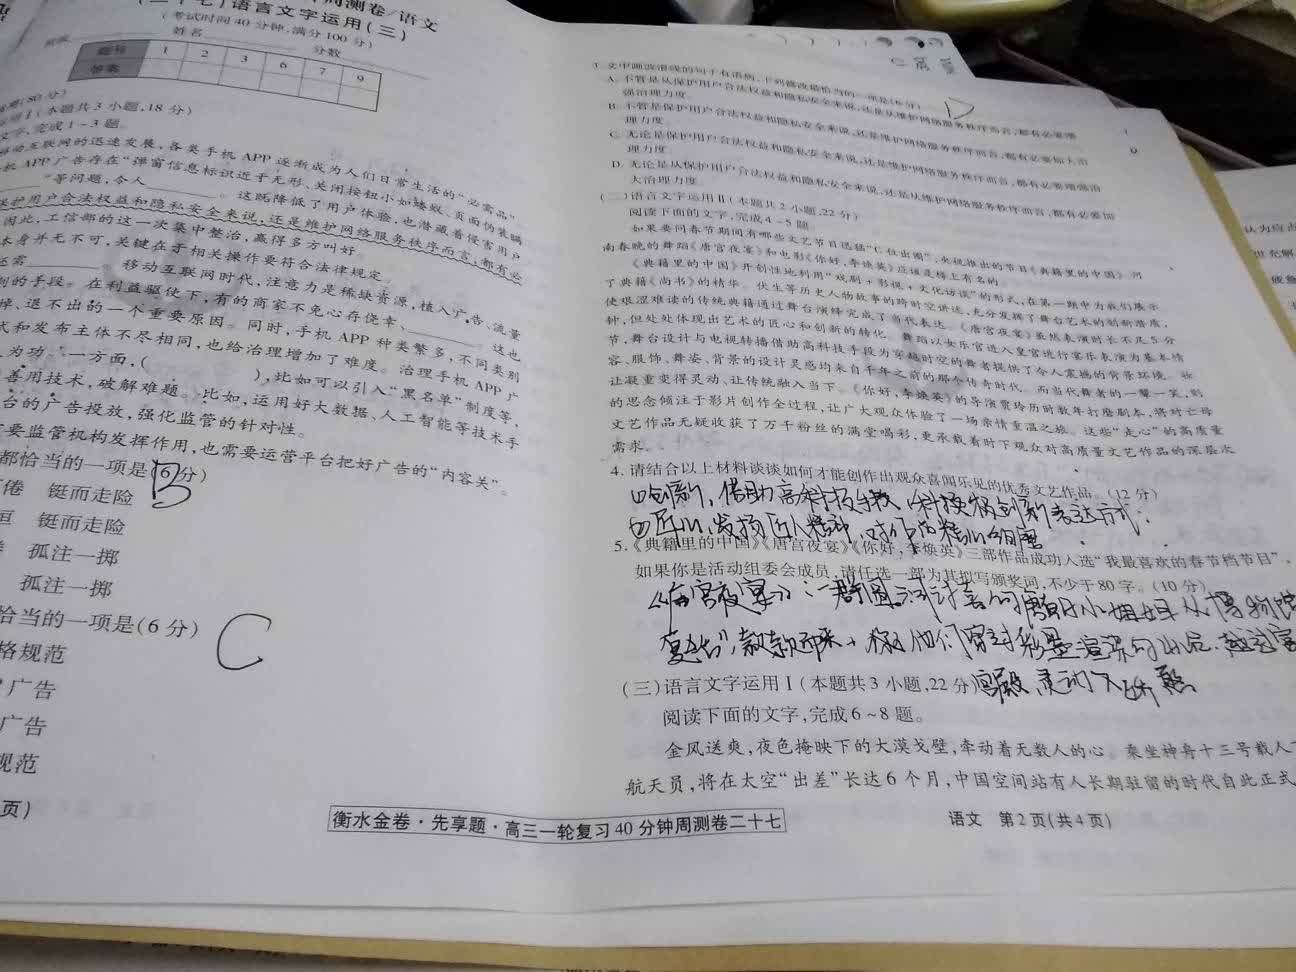 周测卷/语文
(二十七)语言文字运用(三)
(考试时间40分钟,满分100分)
姓名 分数
题号 1 2 3 6 7 9
答案
(本题共3小题,18分)
文字,完成1~3题。
移动互联网的迅速发展,各类手机APP逐渐成为人们日常生活的“必需品”
机APP广告存在“弹窗信息标识近于无形、关闭按钮小如蝼蚁、页面伪装瞒
”等问题,令人________。这既降低了用户体验,也潜藏着侵害用户
保护用户合法权益和隐私安全来说,还是维护网络服务秩序而言,都有必
因此,工信部的这一次集中整治,赢得多方叫好。
本身并无不可,关键在于相关操作要符合法律规定
还需________。移动互联网时代,注意力是稀缺资源,植入广告、流量
制的手段。在利益驱使下,有的商家不免心存侥幸、________。这也
掉、退不出的一个重要原因。同时,手机APP种类繁多,不同类别
式和发布主体不尽相同,也给治理增加了难度。治理手机APP广
为功。一方面,( ),比如可以引入“黑名单”制度等,
善用技术,破解难题。比如,运用好大数据、人工智能等技术手
台的广告投放,强化监管的针对性。
要监管机构发挥作用,也需要运营平台把好广告的“内容关”。
都恰当的一项是(6分)
B
倦 铤而走险
铤而走险
孤注一掷
孤注一掷
恰当的一项是(6分)
C
格规范
广告
广告
规范
页)
3.文中画波浪线的句子有语病,下列修改最恰当的一项是(6分)
D
A.不管是从保护用户合法权益和隐私安全来说,还是从维护网络服务秩序而言,都有必要增
强治理力度。
B.不管是保护用户合法权益和隐私安全来说,还是维护网络服务秩序而言,都有必要加大治
理力度。
C.无论是保护用户合法权益和隐私安全来说,还是维护网络服务秩序而言,都有必要增强治
理力度。
D.无论是从保护用户合法权益和隐私安全来说,还是从维护网络服务秩序而言,都有必要加
大治理力度。
(二)语言文字运用Ⅱ(本题共2小题,22分)
阅读下面的文字,完成4~5题。
如果要问春节期间有哪些文艺节目迅猛“C位出圈”,央视推出的节目《典籍里的中国》、河
南春晚的舞蹈《唐宫夜宴》和电影《你好,李焕英》应该是榜上有名的。
《典籍里的中国》开创性地利用“戏剧+影视+文化访谈”的形式,在第一期中为我们展示
了典籍《尚书》的精华。伏生等历史人物故事的跨时空讲述,充分发挥了舞台艺术的创新潜质,
使艰涩难读的传统典籍通过舞台演绎完成了当代表达。《唐宫夜宴》虽然表演时长不足5分
钟,但处处体现出艺术的匠心和创新的转化。舞蹈以女乐官进入皇宫进行宴乐表演为基本情
节,舞台设计与电视转播借助高科技手段为穿越时空的舞者提供了令人震撼的背景环境。妆
容、服饰、舞姿、背景的设计灵感均来自千年之前的那个传奇时代。而当代舞者的一颦一笑,则
让凝重变得灵动、让传统融入当下。《你好,李焕英》的导演贾玲历时数年打磨剧本,将对亡母
的思念倾注于影片创作全过程,让广大观众体验了一场亲情重温之旅。这些“走心”的高质量
文艺作品无疑收获了万千粉丝的满堂喝彩,更承载着时下观众对高质量文艺作品的深层次
需求。
4.请结合以上材料谈谈如何才能创作出观众喜闻乐见的优秀文艺作品。(12分)
创新,借助高科技手段,创新表达方式;
匠心,发扬匠人精神,对作品精心细磨
5.《典籍里的中国》《唐宫夜宴》《你好,李焕英》三部作品成功入选“我最喜欢的春节档节目”,
如果你是活动组委会成员,请任选一部为其拟写颁奖词,不少于80字。(10分)
(三)语言文字运用Ⅰ(本题共3小题,22分)
阅读下面的文字,完成6~8题。
金风送爽,夜色掩映下的大漠戈壁,牵动着无数人的心。乘坐神舟十三号载人
航天员,将在太空“出差”长达6个月,中国空间站有人长期驻留的时代自此正式
衡水金卷·先享题·高三一轮复习40分钟周测卷二十七
语文 第2页(共4页)